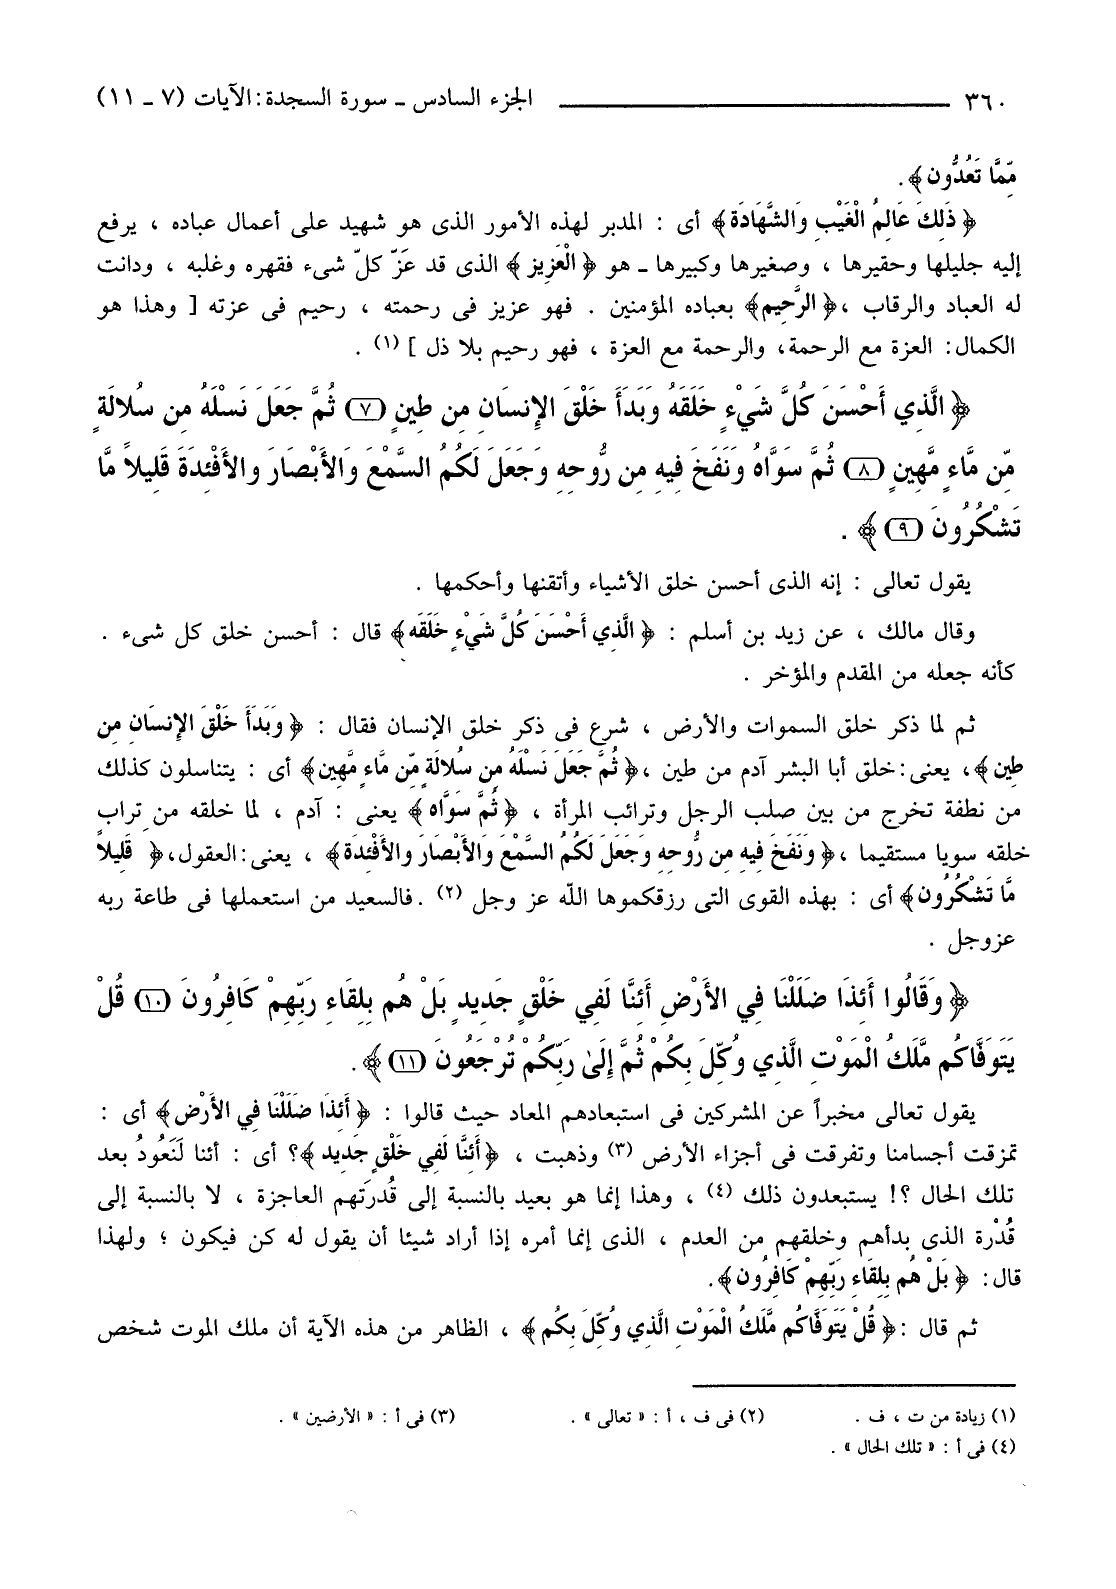 ٣٦٠ الجزء السادس ـ سورة السجدة: الآيات (٧ ـ ١١)
مِّمَّا تَعُدُّون ﴾.
﴿ ذَلِكَ عَالِمُ الْغَيْبِ وَالشَّهَادَة ﴾ أى : المدبر لهذه الأمور الذى هو شهيد على أعمال عباده ، يرفع
إليه جليلها وحقيرها ، وصغيرها وكبيرها ـ هو ﴿ الْعَزِيز ﴾ الذى قد عَزّ كلّ شىء فقهره وغلبه ، ودانت
له العباد والرقاب ، ﴿ الرَّحِيم ﴾ بعباده المؤمنين . فهو عزيز فى رحمته ، رحيم فى عزته [ وهذا هو
الكمال: العزة مع الرحمة، والرحمة مع العزة ، فهو رحيم بلا ذل ] (١) .
﴿ الَّذِي أَحْسَنَ كُلَّ شَيْءٍ خَلَقَهُ وَبَدَأَ خَلْقَ الإِنسَانِ مِن طِينٍ (٧) ثُمَّ جَعَلَ نَسْلَهُ مِن سُلالَةٍ
مِّن مَّاءٍ مَّهِينٍ (٨) ثُمَّ سَوَّاهُ وَنَفَخَ فِيهِ مِن رُّوحِهِ وَجَعَلَ لَكُمُ السَّمْعَ وَالأَبْصَارَ وَالأَفْئِدَةَ قَلِيلاً مَّا
تَشْكُرُونَ (٩) ﴾ .
يقول تعالى : إنه الذى أحسن خلق الأشياء وأتقنها وأحكمها .
وقال مالك ، عن زيد بن أسلم : ﴿ الَّذِي أَحْسَنَ كُلَّ شَيْءٍ خَلَقَه ﴾ قال : أحسن خلق كل شىء .
كأنه جعله من المقدم والمؤخر .
ثم لما ذكر خلق السموات والأرض ، شرع فى ذكر خلق الإنسان فقال : ﴿ وَبَدَأَ خَلْقَ الإِنسَانِ مِن
طِين ﴾، يعنى: خلق أبا البشر آدم من طين ، ﴿ ثُمَّ جَعَلَ نَسْلَهُ مِن سُلالَةٍ مِّن مَّاءٍ مَّهِين ﴾ أى : يتناسلون كذلك
من نطفة تخرج من بين صلب الرجل وترائب المرأة ، ﴿ ثُمَّ سَوَّاه ﴾ يعنى : آدم ، لما خلقه من تراب
خلقه سويا مستقيما ، ﴿ وَنَفَخَ فِيهِ مِن رُّوحِهِ وَجَعَلَ لَكُمُ السَّمْعَ وَالأَبْصَارَ وَالأَفْئِدَة ﴾ ، يعنى: العقول، ﴿ قَلِيلاً
مَّا تَشْكُرُون ﴾ أى : بهذه القوى التى رزقكموها الله عز وجل (٢) . فالسعيد من استعملها فى طاعة ربه
عزوجل .
﴿ وَقَالُوا أَئِذَا ضَلَلْنَا فِي الأَرْضِ أَئِنَّا لَفِي خَلْقٍ جَدِيدٍ بَلْ هُم بِلِقَاءِ رَبِّهِمْ كَافِرُونَ (١٠) قُلْ
يَتَوَفَّاكُم مَّلَكُ الْمَوْتِ الَّذِي وُكِّلَ بِكُمْ ثُمَّ إِلَىٰ رَبِّكُمْ تُرْجَعُونَ (١١) ﴾.
يقول تعالى مخبراً عن المشركين فى استبعادهم المعاد حيث قالوا : ﴿ أَئِذَا ضَلَلْنَا فِي الأَرْض ﴾ أى :
تمزقت أجسامنا وتفرقت فى أجزاء الأرض (٣) وذهبت ، ﴿ أَئِنَّا لَفِي خَلْقٍ جَدِيد ﴾؟ أى : أئنا لَنَعُودُ بعد
تلك الحال ؟! يستبعدون ذلك (٤) ، وهذا إنما هو بعيد بالنسبة إلى قُدرَتهم العاجزة ، لا بالنسبة إلى
قُدْرة الذى بدأهم وخلقهم من العدم ، الذى إنما أمره إذا أراد شيئا أن يقول له كن فيكون ؛ ولهذا
قال: ﴿ بَلْ هُم بِلِقَاءِ رَبِّهِمْ كَافِرُون ﴾.
ثم قال : ﴿ قُلْ يَتَوَفَّاكُم مَّلَكُ الْمَوْتِ الَّذِي وُكِّلَ بِكُم ﴾ ، الظاهر من هذه الآية أن ملك الموت شخص
(١) زيادة من ت ، ف . (٢) فى ف ، أ : « تعالى » . (٣) فى أ : « الأرضين » .
(٤) فى أ : « تلك الحال » .